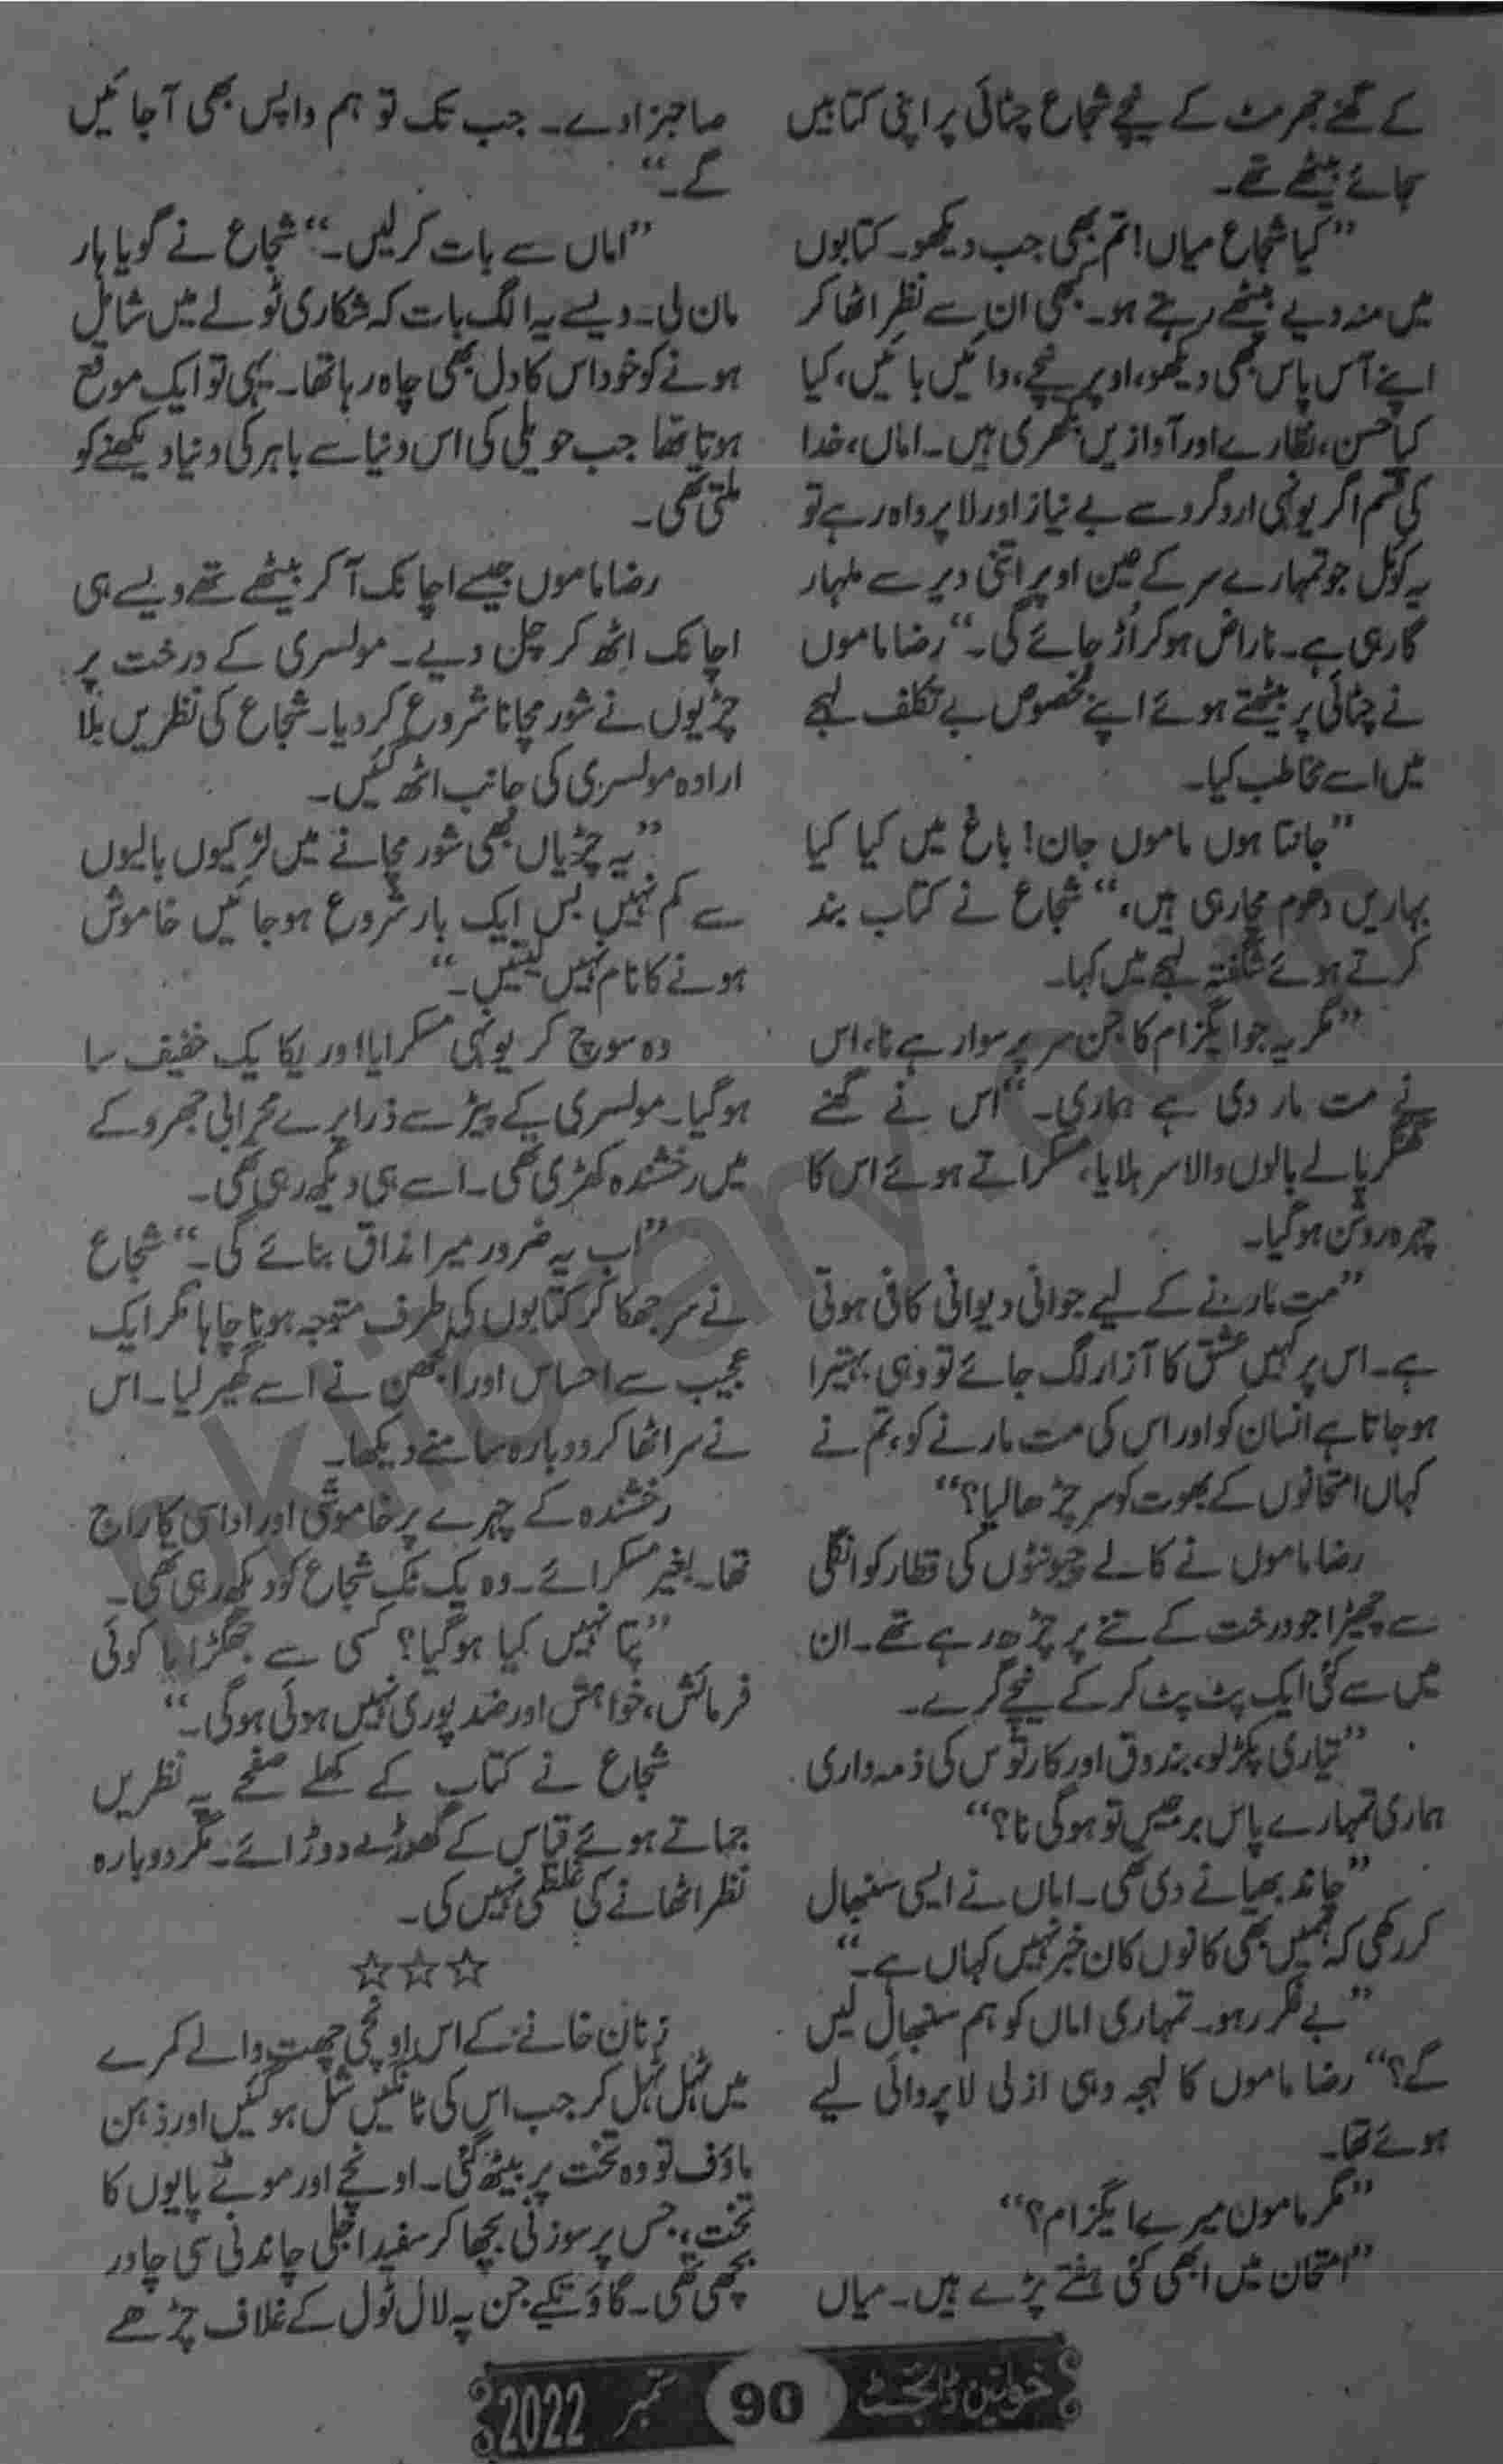 کے گھنے جھرمٹ کے نیچے شجاع چٹائی پر اپنی کتابیں
سجائے بیٹھے تھے۔
”کیا شجاع میاں! تم بھی جب دیکھو۔ کتابوں
میں منہ دیے بیٹھے رہتے ہو۔ کبھی ان سے نظر اٹھا کر
اپنے آس پاس بھی دیکھو، اوپر نیچے، دائیں بائیں، کیا
کیا حسن، نظارے اور آوازیں بکھری ہیں۔ اماں، خدا
کی قسم اگر یونہی اردگرد سے بے نیاز اور لاپرواہ رہے تو
یہ کوئل جو تمہارے سر کے عین اوپر اتنی دیر سے ملہار
گا رہی ہے۔ ناراض ہو کر اُڑ جائے گی۔“ رضا ماموں
نے چٹائی پر بیٹھتے ہوئے اپنے مخصوص بے تکلف لہجے
میں اسے مخاطب کیا۔
”جانتا ہوں ماموں جان! باغ میں کیا کیا
بہاریں دھوم مچا رہی ہیں،“ شجاع نے کتاب بند
کرتے ہوئے شگفتہ لہجے میں کہا۔
”مگر یہ جو ایگزام کا جن سر پر سوار ہے نا، اس
نے مت مار دی ہے ہماری۔“ اس نے گھنے
گھنگریالے بالوں والا سر ہلایا، مسکراتے ہوئے اس کا
چہرہ روشن ہو گیا۔
”مت مارنے کے لیے جوانی دیوانی کافی ہوتی
ہے۔ اس پر کہیں عشق کا آزار لگ جائے تو وہی بہتیرا
ہو جاتا ہے انسان کو اور اس کی مت مارنے کو، تم نے
کہاں امتحانوں کے بھوت کو سر چڑھا لیا؟“
رضا ماموں نے کالے چیونٹوں کی قطار کو انگلی
سے چھیڑا جو درخت کے تنے پر چڑھ رہے تھے۔ ان
میں سے کئی ایک پٹ پٹ کر کے نیچے گرے۔
”تیاری پکڑ لو، بندوق اور کارتوس کی ذمہ داری
ہماری تمہارے پاس برجیس تو ہو گی نا؟“
”چاند بھیا نے دی تھی۔ اماں نے ایسی سنبھال
کر رکھی کہ ہمیں بھی کانوں کان خبر نہیں کہاں ہے۔“
”بے فکر رہو۔ تمہاری اماں کو ہم سنبھال لیں
گے؟“ رضا ماموں کا لہجہ وہی ازلی لاپروائی لیے
ہوئے تھا۔
”مگر ماموں میرے ایگزام؟“
”امتحان میں ابھی کئی ہفتے پڑے ہیں۔ میاں
صاحبزادے۔ جب تک تو ہم واپس بھی آ جائیں
گے۔“
”اماں سے بات کر لیں۔“ شجاع نے گویا ہار
مان لی۔ ویسے یہ الگ بات کہ شکاری ٹولے میں شامل
ہونے کو خود اس کا دل بھی چاہ رہا تھا۔ یہی تو ایک موقع
ہوتا تھا جب حویلی کی اس دنیا سے باہر کی دنیا دیکھنے کو
ملتی تھی۔
رضا ماموں جیسے اچانک آ کر بیٹھے تھے ویسے ہی
اچانک اٹھ کر چل دیے۔ مولسری کے درخت پر
چڑیوں نے شور مچانا شروع کر دیا۔ شجاع کی نظریں بلا
ارادہ مولسری کی جانب اٹھ گئیں۔
”یہ چڑیاں بھی شور مچانے میں لڑکیوں بالیوں
سے کم نہیں بس ایک بار شروع ہو جائیں خاموش
ہونے کا نام نہیں لیتیں۔“
وہ سوچ کر یونہی مسکرایا اور یکایک خفیف سا
ہو گیا۔ مولسری کے پیڑ سے ذرا پرے محرابی جھروکے
میں رخشندہ کھڑی تھی۔ اسے ہی دیکھ رہی تھی۔
”اب یہ ضرور میرا مذاق بنائے گی۔“ شجاع
نے سر جھکا کر کتابوں کی طرف متوجہ ہونا چاہا مگر ایک
عجیب سے احساس اور الجھن نے اسے گھیر لیا۔ اس
نے سر اٹھا کر دوبارہ سامنے دیکھا۔
رخشندہ کے چہرے پر خاموشی اور اداسی کا راج
تھا۔ بغیر مسکرائے۔ وہ یک ٹک شجاع کو دیکھ رہی تھی۔
”پتا نہیں کیا ہو گیا؟ کسی سے جھگڑا یا کوئی
فرمائش، خواہش اور ضد پوری نہیں ہوئی ہو گی۔“
شجاع نے کتاب کے کھلے صفحے پہ نظریں
جماتے ہوئے قیاس کے گھوڑے دوڑائے۔ مگر دوبارہ
نظر اٹھانے کی غلطی نہیں کی۔
☆☆☆
زنان خانے کے اس اونچی چھت والے کمرے
میں ٹہل ٹہل کر جب اس کی ٹانگیں شل ہو گئیں اور ذہن
ماؤف تو وہ تخت پر بیٹھ گئی۔ اونچے اور موٹے پایوں کا
تخت، جس پر سوزنی بچھا کر سفید اجلی چاندنی سی چادر
بچھی تھی۔ گاؤ تکیے جن پہ لال ٹول کے غلاف چڑھے
خواتین ڈائجسٹ 90 ستمبر 2022
pklibrary.com